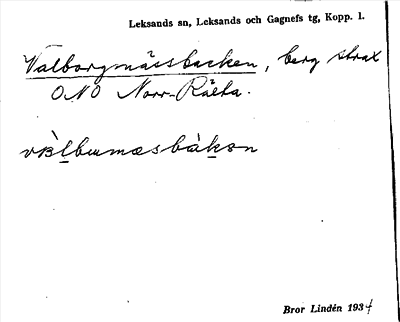 Leksands sn, Leksands och Gagnefs tg, Kopp. l.
Valborgmässbacken, berg strax
ONO Norr-Rälta.
Bror Lindén 1934